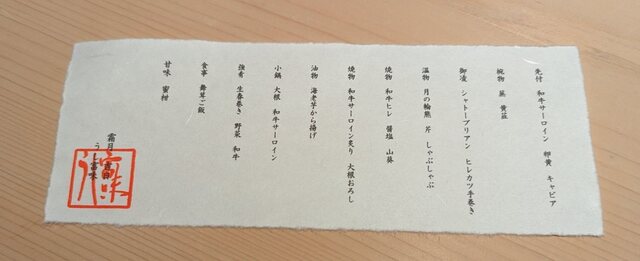 先付　和牛サーロイン　卵黄　キャビア
椀物　蕪　黄韮
御凌　シャトーブリアン　ヒレカツ手巻き
温物　月の輪熊　芹　しゃぶしゃぶ
焼物　和牛ヒレ　醤塩　山葵
焼物　和牛サーロイン炙り　大根おろし
油物　海老芋から揚げ
小鍋　大根　和牛サーロイン
強肴　生春巻き　野菜　和牛
食事　舞茸ご飯
甘味　蜜柑
霜月　吉日
うし富味